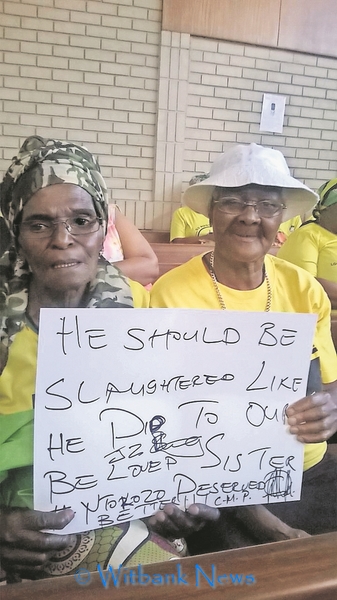 HE SHOULD BE
SLAUGHTERED LIKE
HE DID TO OUR
BELOVED SISTER
# NTOKOZO DESERVED
BETTER!! C.M.P.
© Witbank News